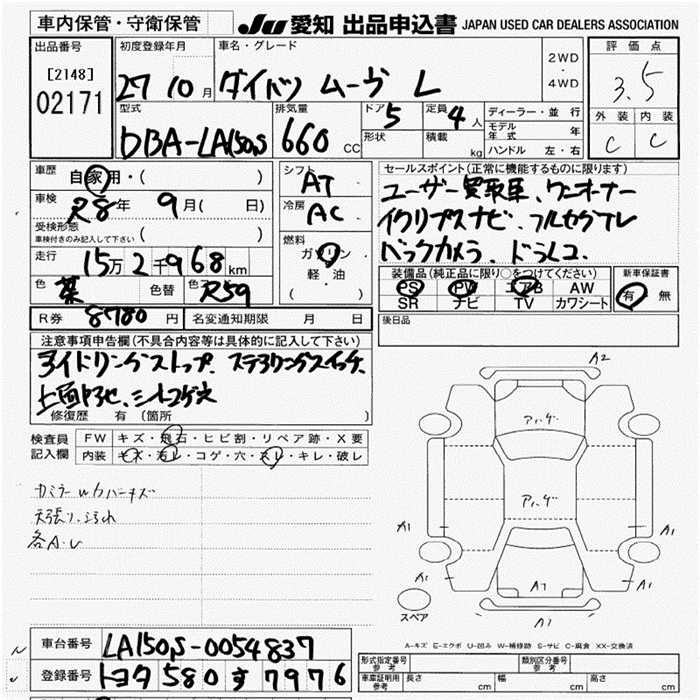 車内保管・守衛保管
JU 愛知 出品申込書 JAPAN USED CAR DEALERS ASSOCIATION
出品番号 初度登録年月 車名・グレード 評価点
[2148]
02171
27 10月 ダイハツ ムーヴ L
2WD
・
4WD
3.5
型式 排気量 ドア 5 定員 4人 ディーラー・並行
外装 内装
DBA-LA150S 660 CC
形状 積載 kg
モデル年式 年
ハンドル 左・右
C C
車歴 自家用・( )
シフト AT
セールスポイント(正常に機能するものに限ります)
車検 R8年 9月( 日)
冷房 AC
ユーザー買取車、ワンオーナー
受検形態 ( )
車検付きのみ記入して下さい
イクリプスナビ、フルセグTV
燃料 ガソリン
軽・油
( )
バックカメラ、ドラレコ
走行 15万2千968km
装備品(純正品に限り○をつけてください) 新車保証書
色 茶 色替 色No R59
PS PW エアB AW
SR ナビ TV カワシート
有・無
R券 8780円 名変通知期限 月 日
後日品
注意事項申告欄(不具合内容等は具体的に記入して下さい)
アイドリングストップ、ステアリングスイッチ、
修復歴 有 (箇所 )
検査員 FW キズ・飛石・ヒビ割・リペア跡・X要
記入欄 内装 キズ・汚レ・コゲ・穴・スレ・キレ・破レ
天張り汚れ
各A・U
A2
A1
A1
A1
A1
A1
スペア
A1
A-キズ E-エクボ U-凹み W-補修跡 S-サビ C-腐食 XX-交換済
車台番号 LA150S-0054837
登録番号 トヨタ 580 す 7976
形式指定番号 参考 類別区分番号 参考
車庫証明用 参考 長さ cm 幅 cm 高さ cm